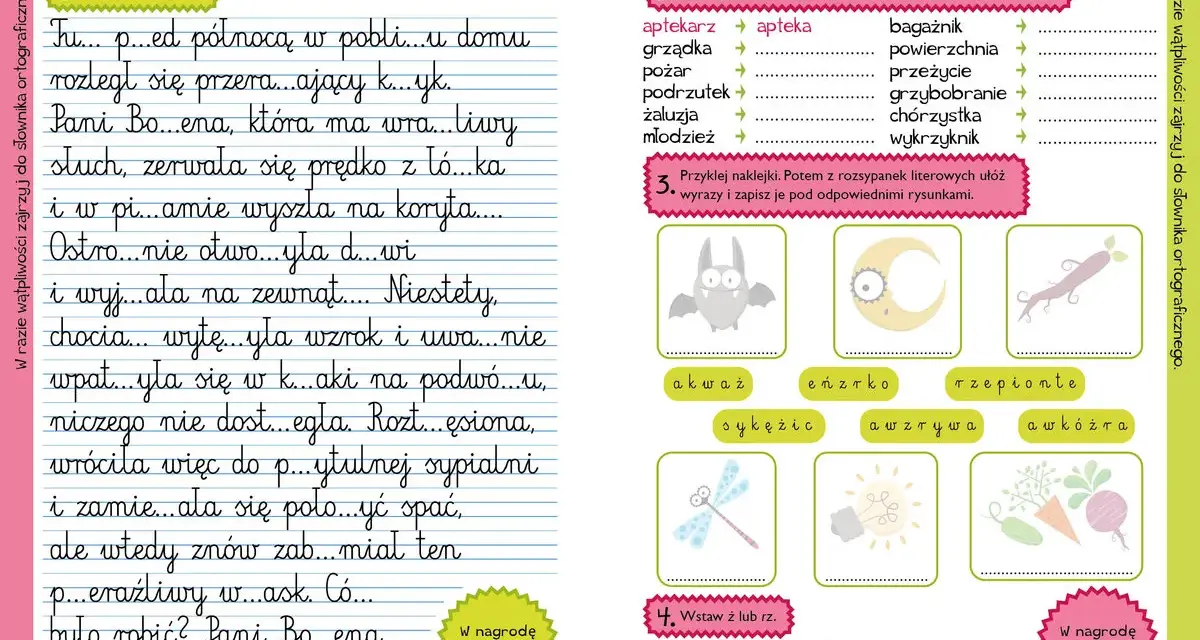 W razie wątpliwości zajrzyj do słownika ortograficzn
Tu... p...ed północą w pobli...u domu
rozległ się przera...ający k...yk.
Pani Bo...ena, która ma wra...liwy
słuch, zerwała się prędko z łó...ka
i w pi...amie wyszła na koryta....
Ostro...nie otwo...yła d...wi
i wyj...ała na zewnąt.... Niestety,
chocia... wytę...yła wzrok i uwa...nie
wpat...yła się w k...aki na podwó...u,
niczego nie dost...egła. Rozt...ęsiona,
wróciła więc do p...ytulnej sypialni
i zamie...ała się poło...yć spać,
ale wtedy znów zab...miał ten
p...eraźliwy w...ask. Có...
było robić? Pani Bo...ena
W nagrodę
aptekarz → apteka
grządka → ....................
pożar → ....................
podrzutek → ....................
żaluzja → ....................
młodzież → ....................
bagażnik → ....................
powierzchnia → ....................
przeżycie → ....................
grzybobranie → ....................
chórzystka → ....................
wykrzyknik → ....................
3. Przyklej naklejki. Potem z rozsypanek literowych ułóż
wyrazy i zapisz je pod odpowiednimi rysunkami.
a k w a ż
e ń z r k o
r z e p i o n t e
s y k ę ż i c
a w z r y w a
a w k ó ż r a
4. Wstaw ż lub rz.
W nagrodę
zie wątpliwości zajrzyj do słownika ortograficznego.